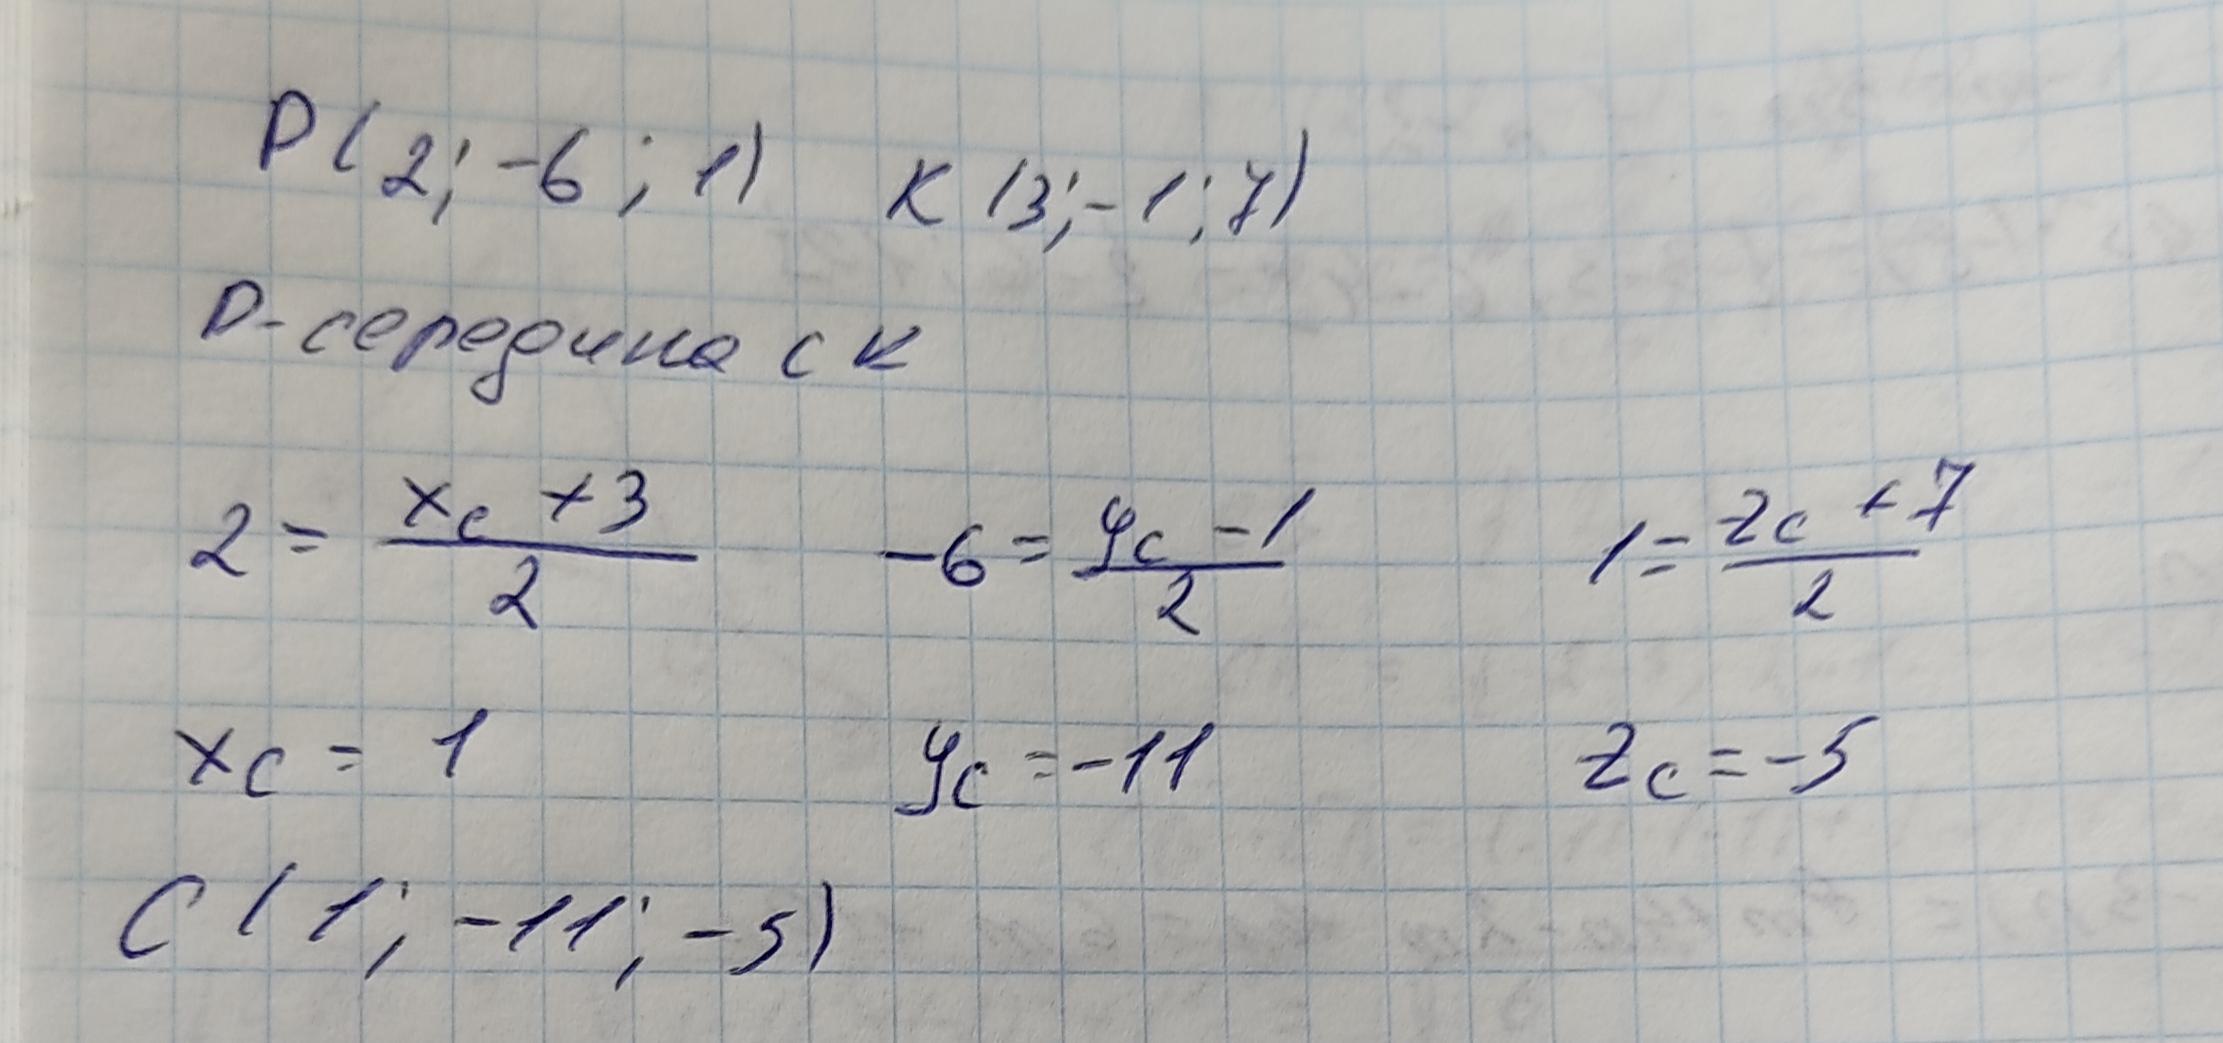 P(2; -6; 1) K(3; -1; 7)
P - середина CK
2 = (x_c + 3)/2 -6 = (y_c - 1)/2 1 = (z_c + 7)/2
x_c = 1 y_c = -11 z_c = -5
C(1; -11; -5)